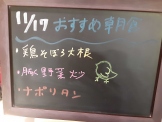 11/17 おすすめ朝食
・鶏そぼろ大根
・豚く野菜炒
・ナポリタン